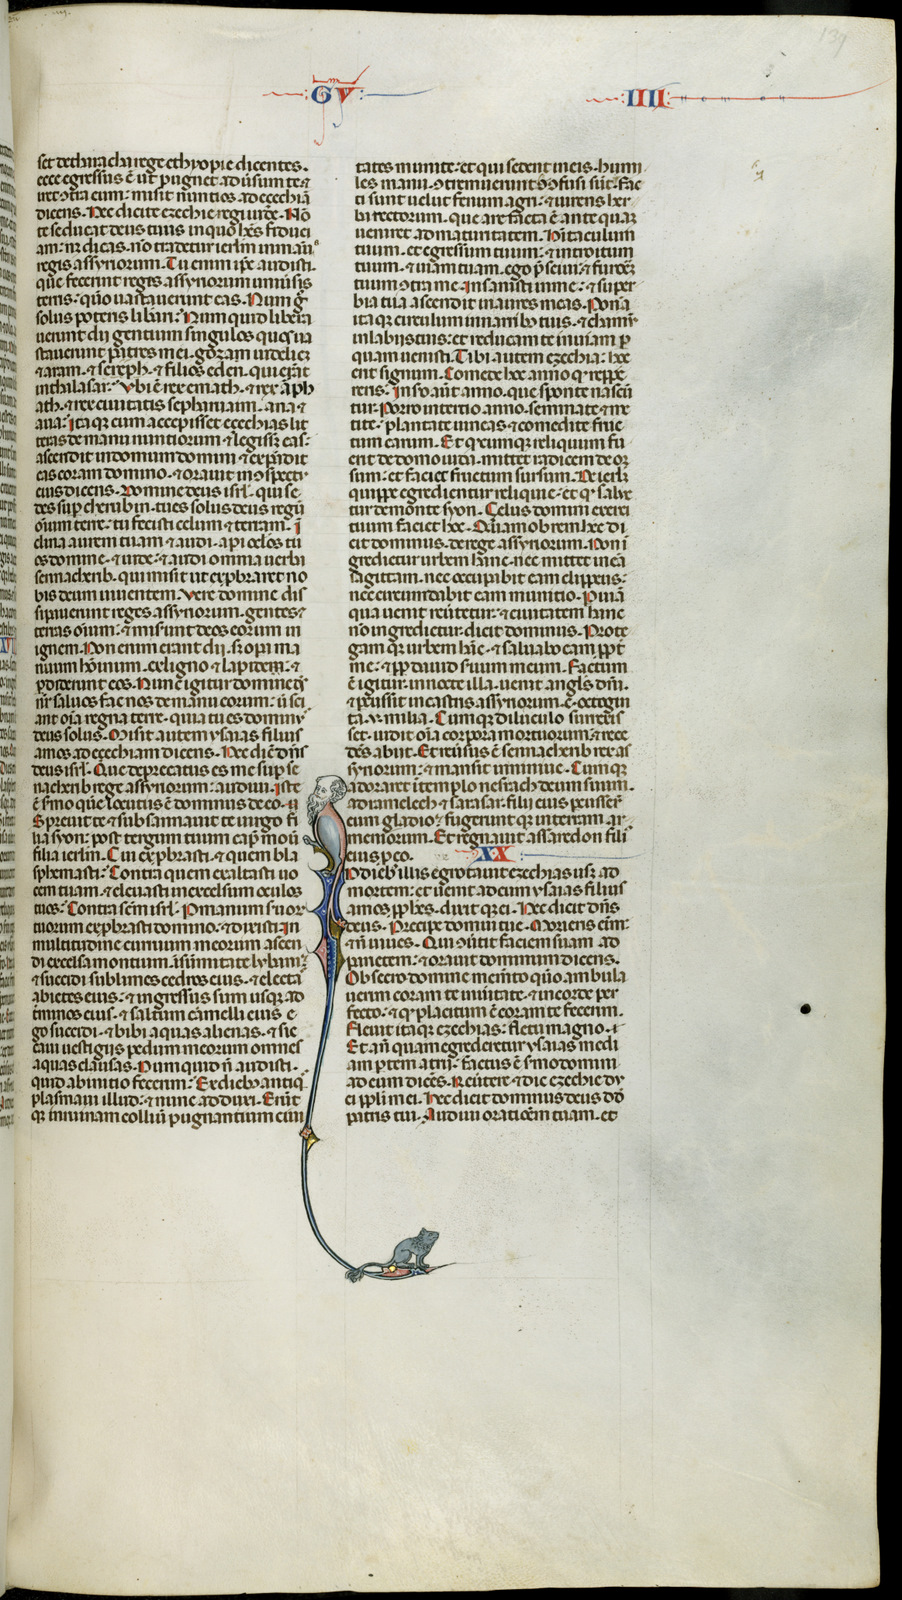 GV
IIII
139
set de tharacha rege ethyopie dicentes.
ecce egressus ē ut pugnet adūsum te ⁊
iret ɔtra eum: misit nuntios ad ezechiā
dicens. Hec dicite ezechie regi iude. Nō
te seducat deus tuus in quo hēs fiduci
am: nr̄ dicas. nō tradetur ierlm in manꝰ
regis assyriorum. Tu enim ip̄e audisti
que fecerint reges assyriorum uniūsis
terris: quō uastauerunt eas. Num g̊
solus poteris libari: Num quid libera
uerunt dii gentium singulos quos ua
stauerunt patres mei. gozam uidelicz
⁊ aram. ⁊ sereph. ⁊ filios eden. qui erāt
in thalasar: Vbi ē rex emath. ⁊ rex arph
ath. ⁊ rex ciuitatis sepharuaim. ana ⁊
aua: Itaque cum accepisset ezechias lit
teras de manu nuntiorum ⁊ legisset eas:
ascendit in domum domini ⁊ expādit
eas coram domino. ⁊ orauit in ɔspectu
eius dicens. Domine deus isrl. qui se
des sup cherubin. tu es solus deus regū
oīum terre: tu fecisti celum ⁊ terram. I
clina aurem tuam ⁊ audi. api oclos tu
os domine. ⁊ uide: ⁊ audi omnia uerba
sennacherib. qui misit ut exp̄braret no
bis deum uiuentem. Vere domine dis
sipauerunt reges assyriorum. gentes ⁊
terras oīum: ⁊ miserunt deos eorum in
ignem. Non enim erant dii. sʒ opa ma
nuum hōinum. ex ligno ⁊ lapidem: ⁊
ꝑdiderunt eos. Nunc igitur domine ds̄
nr̄ saluos fac nos de manu eorum: ū sci
ant oīa regna terre. quia tu es dominꝰ
deus solus. Misit autem ysaias filius
amos ad ezechiam dicens. Hec dic̄ dn̄s
deus isrl. Que deprecatus es me sup se
nacherib rege assyriorum: audiui. Iste
ē s̄mo quē locutus ē dominus de eo.
Spreuit te ⁊ subsannauit te uirgo fi
lia syon: post tergum tuum cap̄ mouit
filia ierlm. Cui exp̄brasti. ⁊ quem bla
sphemasti: Contra quem exaltasti uo
cem tuam. ⁊ eleuasti in excelsum oculos
tuos: Contra sc̄m isrl. Ꝑ manum s̄uor
tuorum exp̄brasti domino. ⁊ dixisti. In
multitudine curruum meorum ascen
di excelsa montium. ī sūmitate lybani:
⁊ succidi sublimes cedros eius. ⁊ electas
abietes eius: ⁊ ingressus sum usque ad
t̄minos eius. ⁊ saltum carmelli eius e
go succidi. ⁊ bibi aquas alienas. ⁊ sic
caui uestigiis pedum meorum omnes
aquas clausas. Num quid n̄ audisti.
quid ab initio fecerim: Ex diebꝰ antiq̄s
plasmaui illud: ⁊ nunc adduxi. Erūt
que in ruinam colliū pugnantium ciui
tates munite: et qui sedent in eis. humi
les manu. ɔtremuerunt ⁊ ɔfusi sūt: fac
ti sunt uelut fenum agri: ⁊ uirens her
ba tectorum. que arefacta ē ante quam
ueniret ad maturitatem. Habitaculum
tuum. et egressum tuum: ⁊ introitum
tuum. ⁊ uiam tuam. ego p̄sciui: ⁊ furorē
tuum ɔtra me. Insanisti in me: ⁊ super
bia tua ascendit in aures meas. Ponā
itaque circulum in narribꝰ tuis. ⁊ chamū
in labiis tuis: et reducam te in uiam ꝑ
quam uenisti. Tibi autem ezechia: hoc
erit signum. Comede hoc anno q̄ reppe
reris: In sc̄do aūt anno. que sponte nascū
tur. Porro in tertio anno. seminate ⁊ me
tite: plantate uineas ⁊ comedite fruc
tum earum. Et q̄cumque reliquum fu
erit de domo iuda. mittet radicem deor
sum: et faciet fructum sursum. De ierlm
quippe egredientur reliquie: et q̄ salue
tur de monte syon. Zelus domini exerci
tuum faciet hoc. Quam ob rem hec di
cit dominus. de rege assyriorum. Non ī
gredietur urbem hanc. nec mittet in eā
sagittam. nec occupabit eam clippeus:
nec circumdabit eam munitio. Ꝑ uiā
qua uenit reūtetur: ⁊ ciuitatem hanc
nō ingredietur. dicit dominus. Prote
gam que urbem hāc. ⁊ saluabo eam ꝓpt
me: ⁊ ꝓpter dauid s̄uum meum. Factum
ē igitur. in nocte illa. uenit angls dn̄i.
⁊ percussit in castris assyriorum. c. octogin
ta. v. milia. Cumque diluculo surrexis
set. uidit oīa corpora mortuorum: ⁊ rece
dēs abiit. Et reūsus ē sennacherib rex as
syriorum: ⁊ mansit in niniue. Cumque
adoraret ī templo nesrach deum suum.
adramelech ⁊ sarasar. filii eius percusser̄
eum gladio: ⁊ fugerunt que in terram ar
meniorum. Et regnauit assaredon filiꝰ
eius ꝑ eo.
XX
In diebꝰ illis egrotauit ezechias usque ad
mortem: et uenit ad eum ysaias filius
amos ꝓphes. dixit que ei. Hec dicit dn̄s
deus. Precipe domui tue. Morieris eīm:
⁊ n̄ uiues. Qui ɔūtit faciem suam ad
parietem: ⁊ orauit dominum dicens.
Obsecro domine memēto quō ambula
uerim coram te in ūitate. ⁊ in corde per
fecto: ⁊ q̄ placitum ē coram te fecerim.
Fleuit itaque ezechias: fletu magno.
Et an̄ quam egrederetur ysaias medi
am ꝑtem atrii: factus ē s̄mo domini
ad eum dicēs. Reūtere ⁊ dic ezechie du
ci ꝓpli mei. Hec dicit dominus deus dd̄
patris tui. Audiui orationēm tuam. et